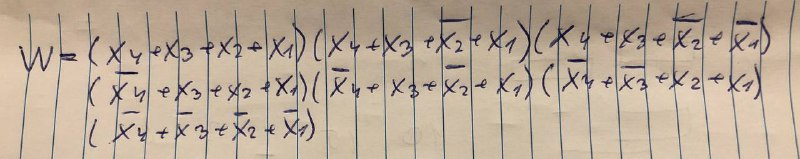 W = (X4+X3+X2+X1)(X4+X3+X̅2+X1)(X4+X3+X̅2+X̅1)
(X̅4+X3+X2+X1)(X̅4+X3+X̅2+X1)(X̅4+X̅3+X2+X1)
(X̅4+X̅3+X̅2+X̅1)